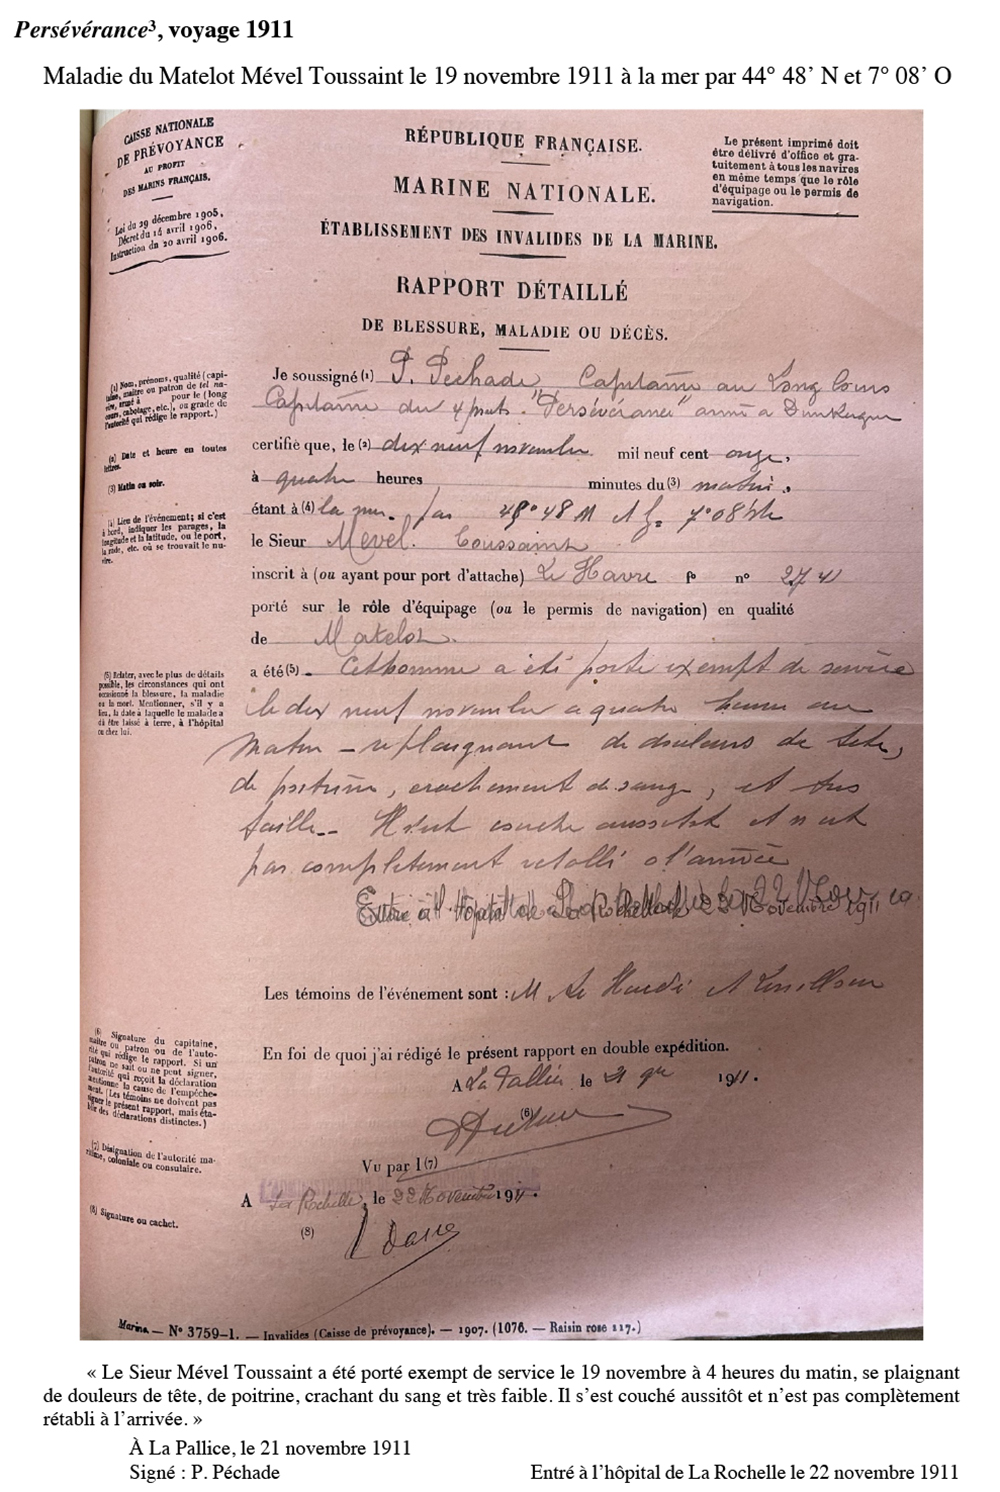 Persévérance³, voyage 1911
Maladie du Matelot Mével Toussaint le 19 novembre 1911 à la mer par 44° 48’ N et 7° 08’ O
CAISSE NATIONALE
DE PRÉVOYANCE
AU PROFIT
DES MARINS FRANÇAIS.
Loi du 29 décembre 1905,
Décret du 14 avril 1906,
Instruction du 20 avril 1906.
RÉPUBLIQUE FRANÇAISE.
MARINE NATIONALE.
ÉTABLISSEMENT DES INVALIDES DE LA MARINE.
Le présent imprimé doit
être délivré d'office et gra-
tuitement à tous les navires
en même temps que le rôle
d'équipage ou le permis de
navigation.
RAPPORT DÉTAILLÉ
DE BLESSURE, MALADIE OU DÉCÈS.
(1) Nom, prénoms, qualité (capi-
taine, maître ou patron de tel na-
vire, armé à pour le (long
cours, cabotage, etc.), ou grade de
l'autorité qui rédige le rapport.)
Je soussigné (1) P. Péchade Capitaine au Long Cours
Capitaine du 4 mats "Persévérance" armé a Dunkerque
(2) Date et heure en toutes
lettres.
certifie que, le (2) dix neuf novembre mil neuf cent onze,
(3) Matin ou soir.
à quatre heures minutes du (3) matin,
(4) Lieu de l'événement; si c'est
à bord, indiquer les parages, la
longitude et la latitude, ou le port,
la rade, etc. où se trouvait le na-
vire.
étant à (4) la mer. par 48 N 7°08
le Sieur Mevel. Toussaint
inscrit à (ou ayant pour port d'attache) Le Havre f° n° 274
porté sur le rôle d'équipage (ou le permis de navigation) en qualité
de Matelot.
(5) Relater, avec le plus de détails
possible, les circonstances qui ont
occasionné la blessure, la maladie
ou la mort. Mentionner, s'il y a
lieu, la date à laquelle le malade a
dû être laissé à terre, à l'hôpital
ou chez lui.
a été (5) Cet homme a été porté exempt de service
le dix neuf novembre a quatre heures du
matin – se plaignant de douleurs de tete,
de poitrine, crachement de sang, et tres
faible. Il s'est couché aussitot et n'est
pas completement retabli a l'arrivée
Entré à l'Hôpital de La Rochelle le 22 Novembre 1911
Les témoins de l'événement sont : M Le Hardi et
(6) Signature du capitaine,
maître ou patron ou de l'auto-
rité qui rédige le rapport. Si un
patron ne sait ou ne peut signer,
l'autorité qui reçoit la déclaration
mentionne la cause de l'empêche-
ment. (Les témoins ne doivent pas
signer le présent rapport, mais éta-
blir des déclarations distinctes.)
En foi de quoi j'ai rédigé le présent rapport en double expédition.
A La Pallice le 21 9bre 1911.
(6)
(7) Désignation de l'autorité ma-
ritime, coloniale ou consulaire.
Vu par l (7)
A La Rochelle, le 22 Novembre 1911.
(8) Signature ou cachet.
(8)
Marine. — N° 3759-1. — Invalides (Caisse de prévoyance). — 1907. (1076. — Raisin rose 117.)
« Le Sieur Mével Toussaint a été porté exempt de service le 19 novembre à 4 heures du matin, se plaignant
de douleurs de tête, de poitrine, crachant du sang et très faible. Il s’est couché aussitôt et n’est pas complètement
rétabli à l’arrivée. »
À La Pallice, le 21 novembre 1911
Signé : P. Péchade Entré à l’hôpital de La Rochelle le 22 novembre 1911